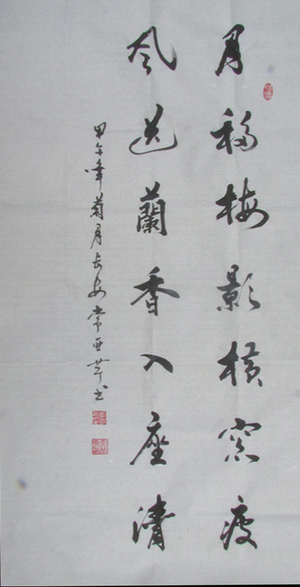 月移梅影橫窗瘦
风送蘭香入座清
甲午年菊月長安常亚芹书